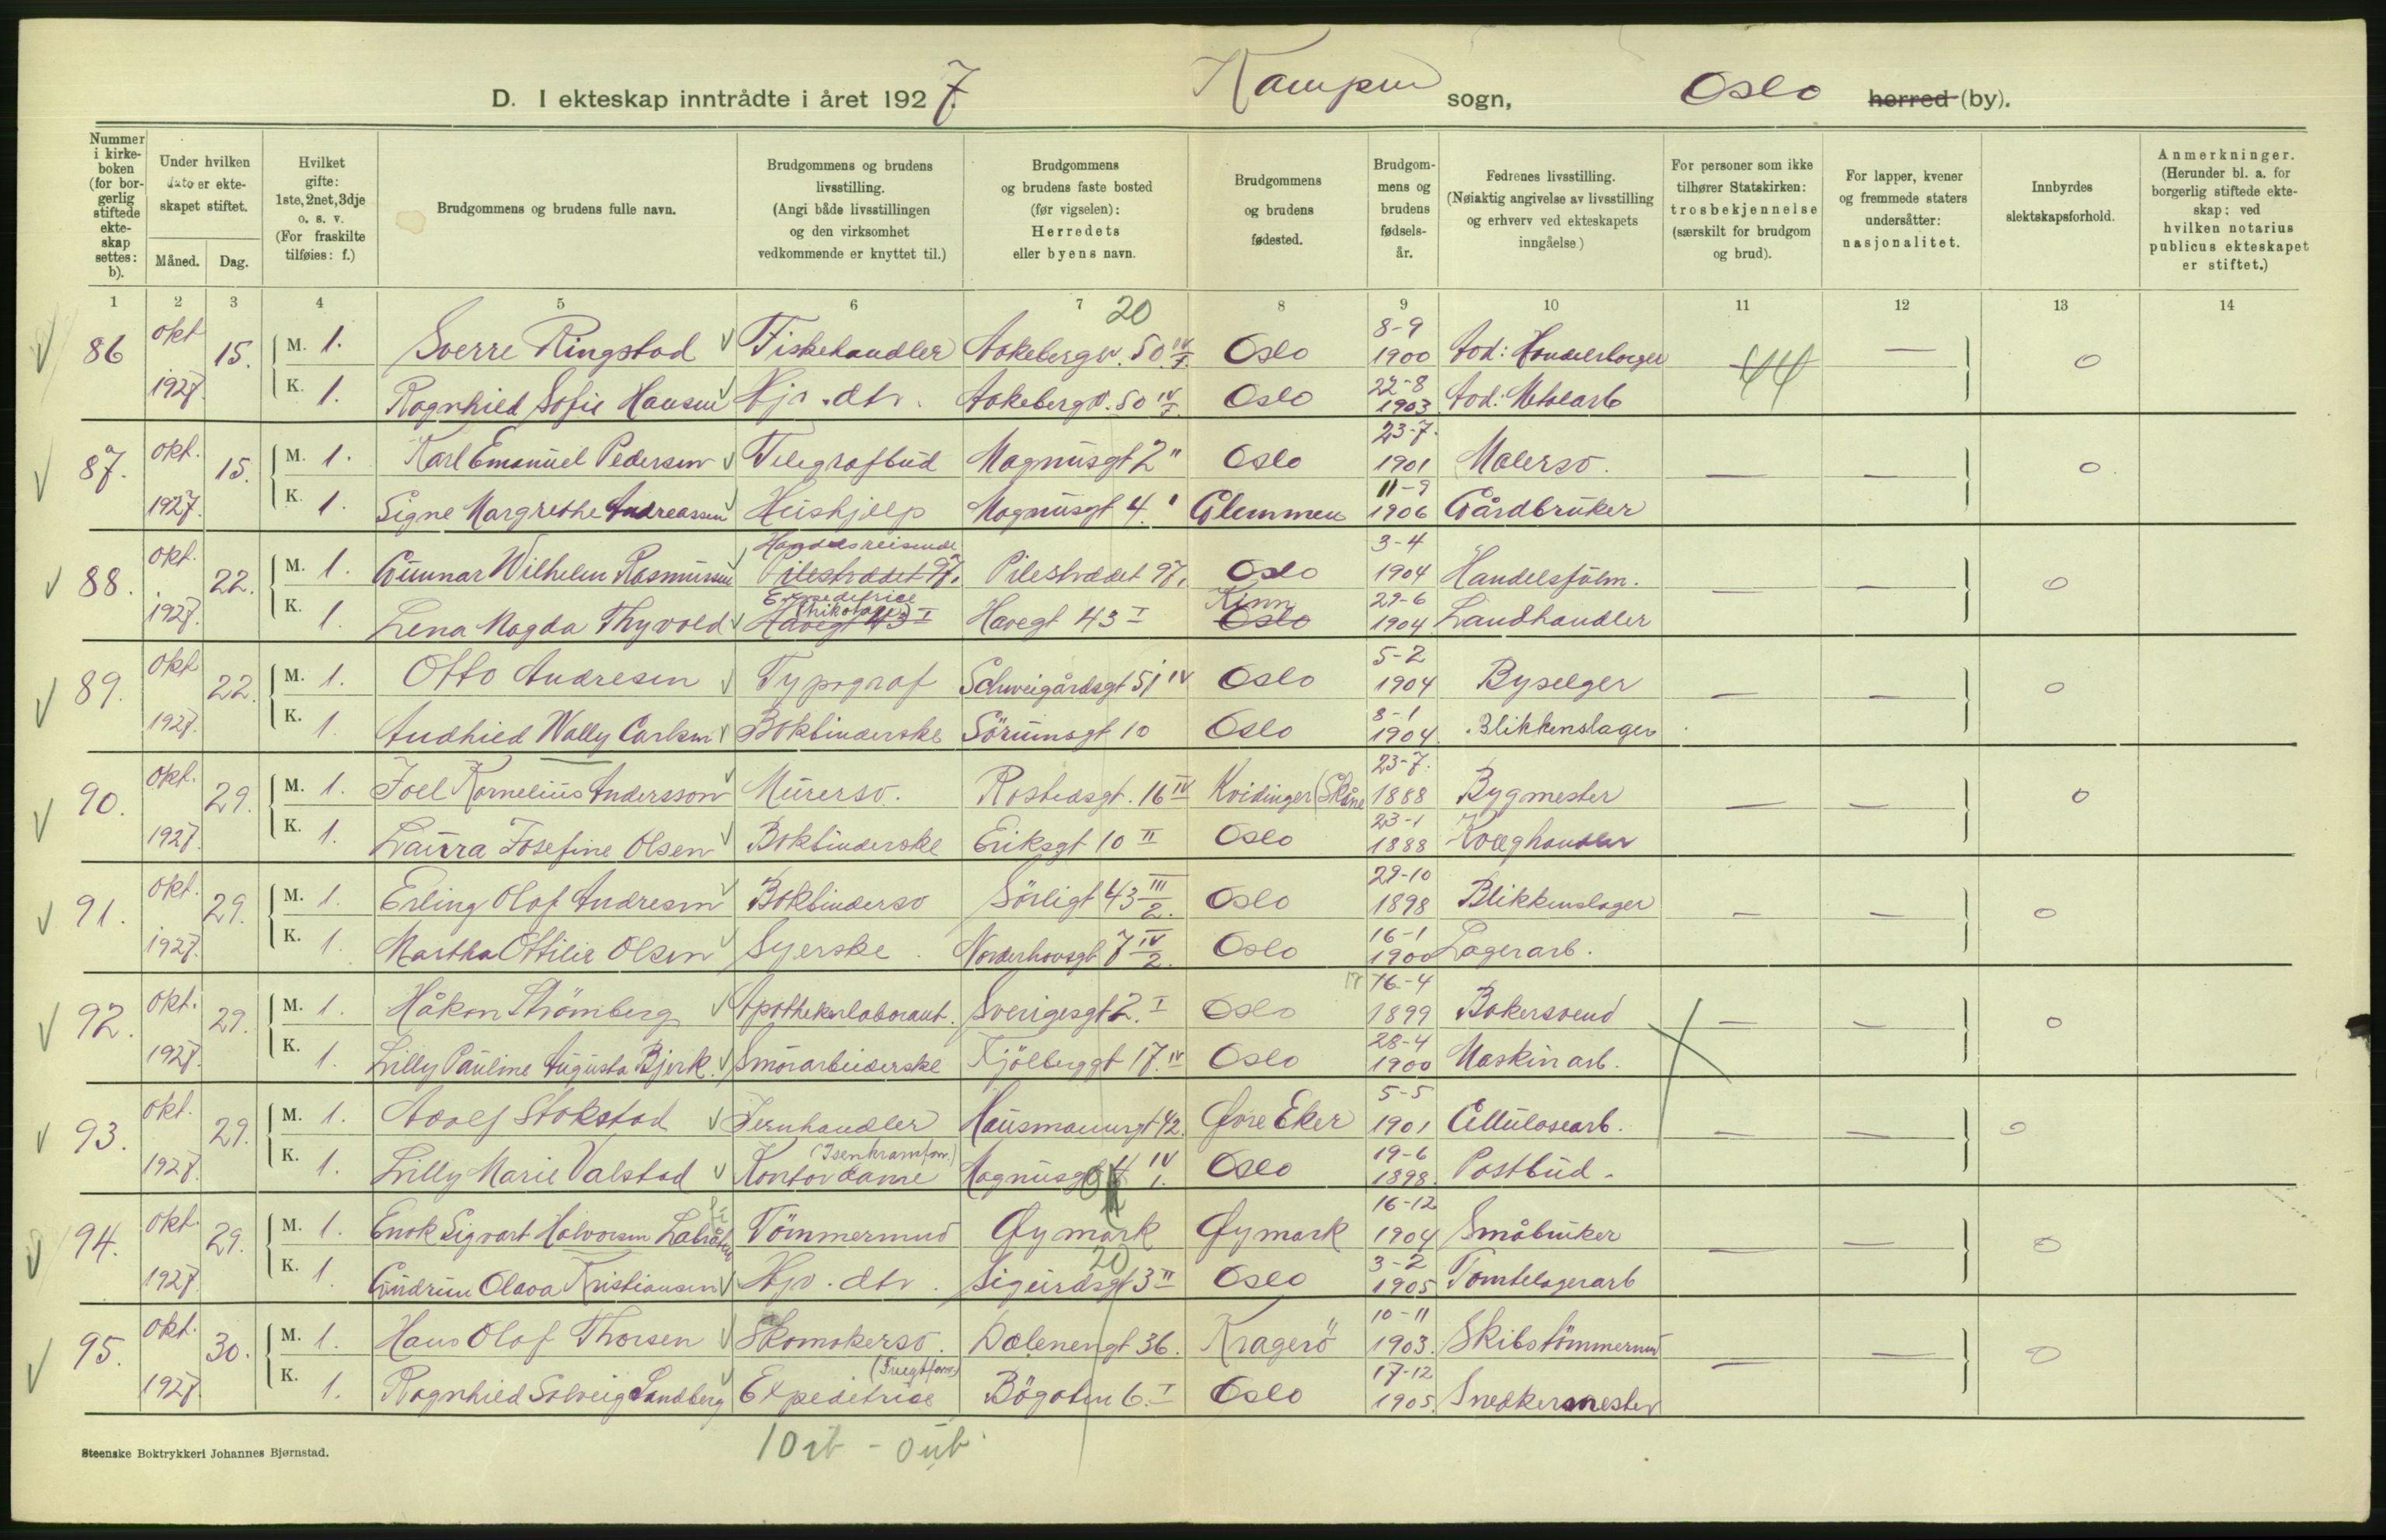 D. I ekteskap inntrådte i året 1927. Kampen sogn, Oslo herred (by).
Nummer i kirkeboken (for borgerlig stiftede ekteskap settes: b).
Under hvilken dato er ekteskapet stiftet.
Måned. Dag.
Hvilket gifte: 1ste, 2net, 3dje o. s. v. (For fraskilte tilføies: f.)
Brudgommens og brudens fulle navn.
Brudgommens og brudens livsstilling. (Angi både livsstillingen og den virksomhet vedkommende er knyttet til.)
Brudgommens og brudens faste bosted (før vigselen): Herredets eller byens navn.
Brudgommens og brudens fødested.
Brudgommens og brudens fødselsår.
Fedrenes livsstilling. (Nøiaktig angivelse av livsstilling og erhverv ved ekteskapets inngåelse.)
For personer som ikke tilhører Statskirken: trosbekjennelse (særskilt for brudgom og brud).
For lapper, kvener og fremmede staters undersåtter: nasjonalitet.
Innbyrdes slektskapsforhold.
Anmerkninger. (Herunder bl. a. for borgerlig stiftede ekteskap; ved hvilken notarius publicus ekteskapet er stiftet.)
1 2 3 4 5 6 7 8 9 10 11 12 13 14
20
86 okt 1927. 15. M. 1. Sverre Ringstad Fiskehandler Aakebergv. 50 IV/I. Oslo 8-9 1900 —— — 0
K. 1. Ragnhild Sofie Hansen Hjv. dtr. Aakebergv. 50 IV/I. Oslo 22-8 1903 Aod: Metalarb
87. okt. 1927. 15. M. 1. Karl Emanuel Pedersen Telegrafbud Magnusgt 2 II Oslo 23-7. 1901 Malersv. — — 0
K. 1. Signe Margrethe Andreassen Hushjelp Magnusgt 4. I Glemmen 11-9 1906 Gårdbruker
88. okt. 1927. 22. M. 1. Gunnar Wilhelm Rasmussen Handelsreisende Pilestrædet 97. Pilestrædet 97. Oslo 3-4 1904 Handelsfulm. 0
K. 1. Lena Magda Thyvold Expeditrice (trikotage) Havegt 43 I Havegt 43 I Kinn Oslo 29-6 1904 Landhandler
89. okt 1927. 22. M. 1. Otto Andresen Typograf Schweigårdsgt 51 IV Oslo 5-2 1904 Byselger — — 0
K. 1. Audhild Wally Carlsen Bokbinderske Sörumsgt 10 Oslo 8-1 1904. Blikkenslager
90. okt. 1927. 29. M. 1. Joel Kornelius Andersson Murersv. Rostedsgt. 16 IV Kvidinger (Skåne 23-7. 1888 Bygmester — — 0
K. 1. Laura Josefine Olsen Bokbinderske Eriksgt 10 II Oslo 23-1 1888 Kvæghandler
91. okt. 1927. 29. M. 1. Erling Olaf Andresen Bokbindersv Sörligt 43 III/2. Oslo 29-10 1898 Blikkenslager — — 0
K. 1. Martha Ottilie Olsen Syerske Norderhovsgt 7 IV/2. Oslo 16-1 1900 Lagerarb.
92. okt. 1927. 29. M. 1. Håkon Strömberg Apothekerlaborant. Sverigesgt 2. I Oslo 16-4 1899 Bakersvend — — 0
K. 1. Lilly Pauline Augusta Bjerk. Smörarbeiderske Kjölberggt 17. IV Oslo 28-4 1900 Maskinarb.
93. okt. 1927. 29. M. 1. Adolf Stokstad Jernhandler Hausmannsgt 42. Øvre Eker 5-5 1901 Cellulosearb. — — 0
K. 1. Lilly Marie Valstad Kontordame (Isenkramforr.) Magnusgt 4 IV/1. Oslo 19-6 1898. Postbud.
94. okt. 1927. 29. M. 1. Enok Sigvart Halvorsen Tömmermnd Øymark Øymark 16-12 1904 Småbruker — — 0
20
K. 1. Gudrun Olava Kristiansen Hjv. dtr. Sigurdsgt 3 II Oslo 3-2 1905 Tomtelagerarb
95. okt. 1927. 30. M. 1. Hans Olaf Thorsen Skomakersv. Dælenengt 36. Kragerö 10-11 1903. Skibstömmermnd — — 0
K. 1. Ragnhild Solveig Sandberg Expeditrice Bögaten 6. I Oslo 17-12 1905. Snedkermester
Steenske Boktrykkeri Johannes Bjørnstad.